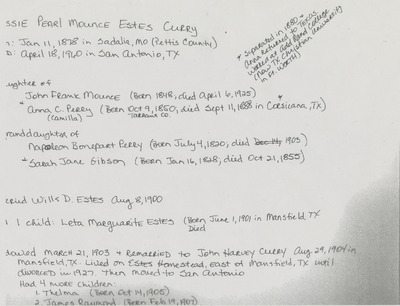 SSIE PEARL MOUNCE ESTES CURRY
N: Jan 11, 1878 in Sadalia, MO (Pettis County)
D: April 18, 1960 in San Antonio, TX
* Separated in 1880 *
Anna returned to Texas
worked at Add Rand College
(now TX Christian University
in Ft. Worth)
ughter of
John Frank Mounce (Born 1848; died April 6, 1925)
* Anna C. Perry (Born Oct 9, 1850; died Sept 11, 1888 in Corsicana, TX)
(Camilla) Tarrant Co.
randdaughter of
Napoleon Bonepart Perry (Born July 4, 1820; died 1903)
* Sarah Jane Gibson (Born Jan 16, 1828; died Oct 21, 1855)
rried Wills D. Estes Aug 8, 1900
1 child: Leta Marguarite Estes (Born June 1, 1901 in Mansfield TX
Died
March 21, 1903 & remarried to John Harvey Curry Aug 29, 1904 in
Mansfield, TX. Lived on Estes Homestead, east of Mansfield, TX until
divorced in 1927. Then moved to San Antonio
Had 4 more children:
1. Thelma (Born Oct 14, 1905)
2. James Raymond (Born Feb 19, 1907)